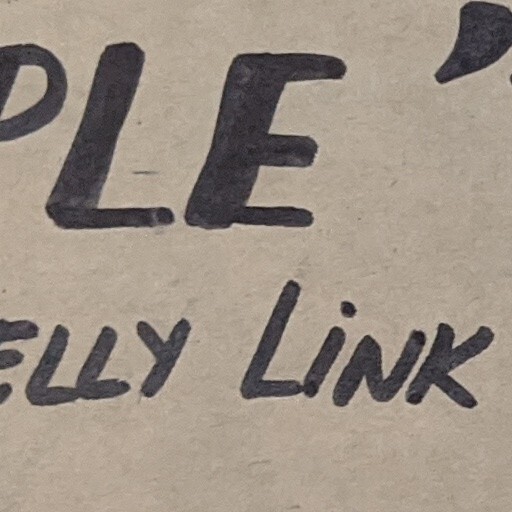 PLE '
ELLY LINK